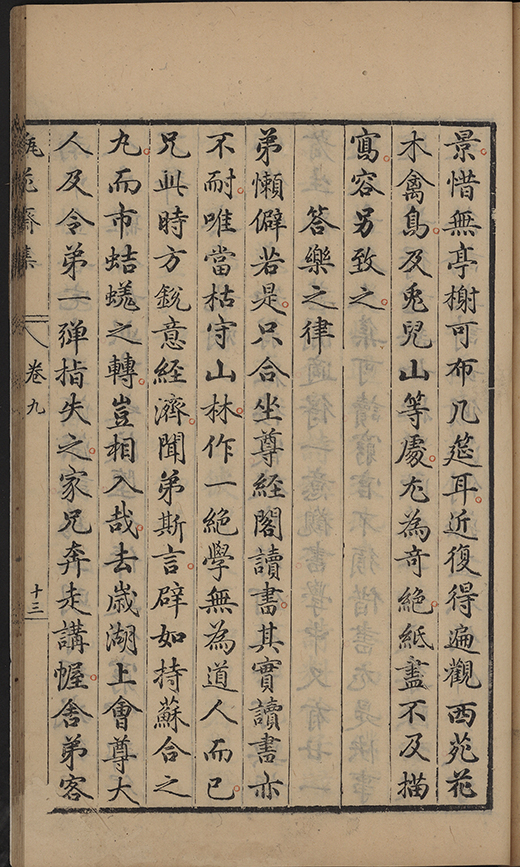 景惜無亭榭可布几筵耳近復得遍觀西苑花
木禽鳥及兎兒山等處尤為奇絶紙盡不及描
寫容另致之
答樂之律
弟懶僻若是只合坐尊經閣讀書其實讀書亦
不耐唯當枯守山林作一絶學無為道人而已
兄此時方銳意經濟聞弟斯言辟如持蘇合之
丸而市蛣蜣之轉豈相入哉去歲湖上會尊大
人及令弟一弾指失之家兄奔走講幄舍弟客
瓶花齋集
卷九
十三